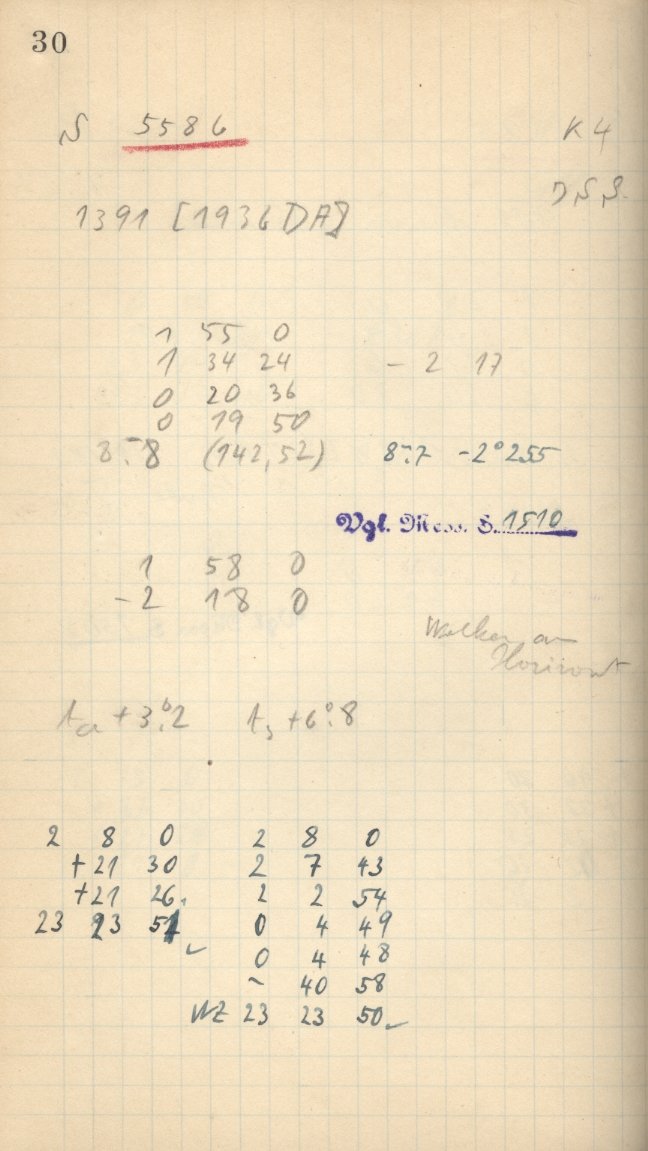 30
S 5586 K 4
1391 [1936 DA]
1 55 0
1 34 24 - 2 17
0 20 36
0 19 50
8.m8 (142,52) 8.m7 -2°255
Vgl. Mess. S. 1510
1 58 0
-2 18 0
Wolken am
Horizont
ta +3.°2 ts +6.°8
2 8 0 2 8 0
+21 30 2 7 43
+21 26. 2 2 54
23 23 51 ✓ 0 4 49
0 4 48
- 40 58
WZ 23 23 50 ✓